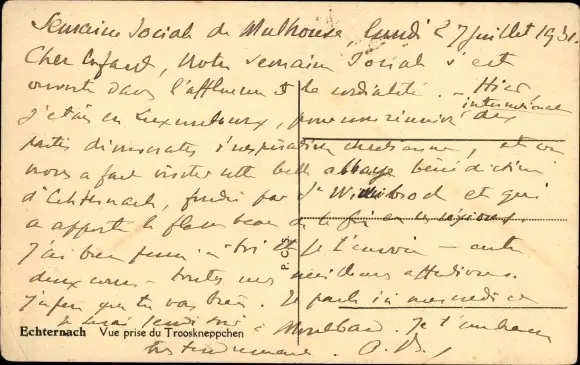 Semaine Sociale de Mulhouse, lundi 27 juillet 1931.
Cher Enfant, Notre Semaine Sociale s'est
ouverte dans l'affluence et la cordialité. – Hier
j'étais en Luxembourg, pour une réunion internationale des
partis démocrates d'inspiration chrétienne, et on
nous a fait visiter cette belle abbaye bénédictine
d'Echternach, fondée par St Willibrod et qui
a apporté le flambeau de la foi en ces régions.
J'ai bien pensé à toi et je t'envoie – entre
deux cours – toutes mes meilleures affections.
J'espère que tu vas bien. Je pars ici mercredi
et serai vendredi soir à Montbard. Je t'embrasse
très tendrement.
P. C. S.
Echternach Vue prise du Trooskneppchen